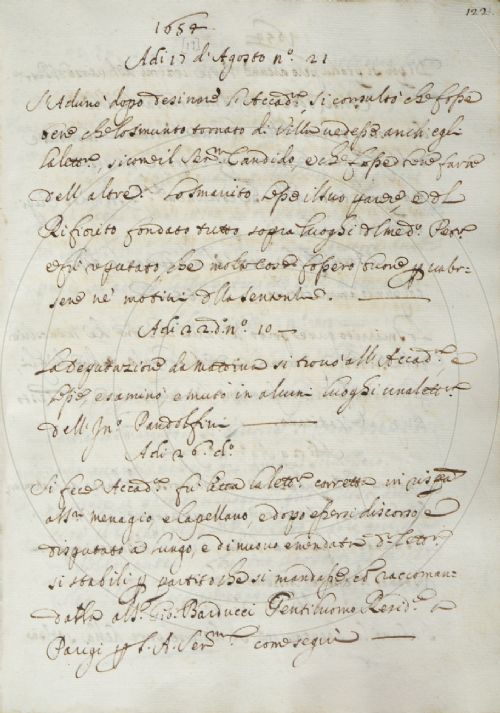 122.
1654
Adi 17 d'Agosto n.º 21
S'Adunò dopo desinare l'Accad.ª, si consultò che fosse
bene che lo Smunto tornato di Villa vedesse anch'egli
la lett.ra, siccome il Ser.mo Candido, e che fosse bene farne
dell'altre. Lo Smarrito lesse il suo parere, e del
Rifiorito fondato tutto sopra luoghi del med.º Petr.
e fu reputato, che molte cose fossero buone p valer-
sene ne' motivi della sentenza.
Adi 22 d.º n.º 10
La Deputazione da mattina si trovò all'Accad.ª, e
lesse, esaminò, e mutò in alcuni luoghi una lett.ra
dell'
Pandolfini
Adi 26. d.º
Si fece Accad.ª fu letta la lett.ra corretta in risp.ta
al Sr. Menagio, e Capellano, e dopo essersi discorso, e
disputato a lungo, e di nuovo emendata d.ª lett.ra
si stabilì p partito che si mandasse, et raccoman-
data al Sr. Gio. Barducci Gentiluomo Resid.te a
Parigi p S. A. Ser.ma come segue